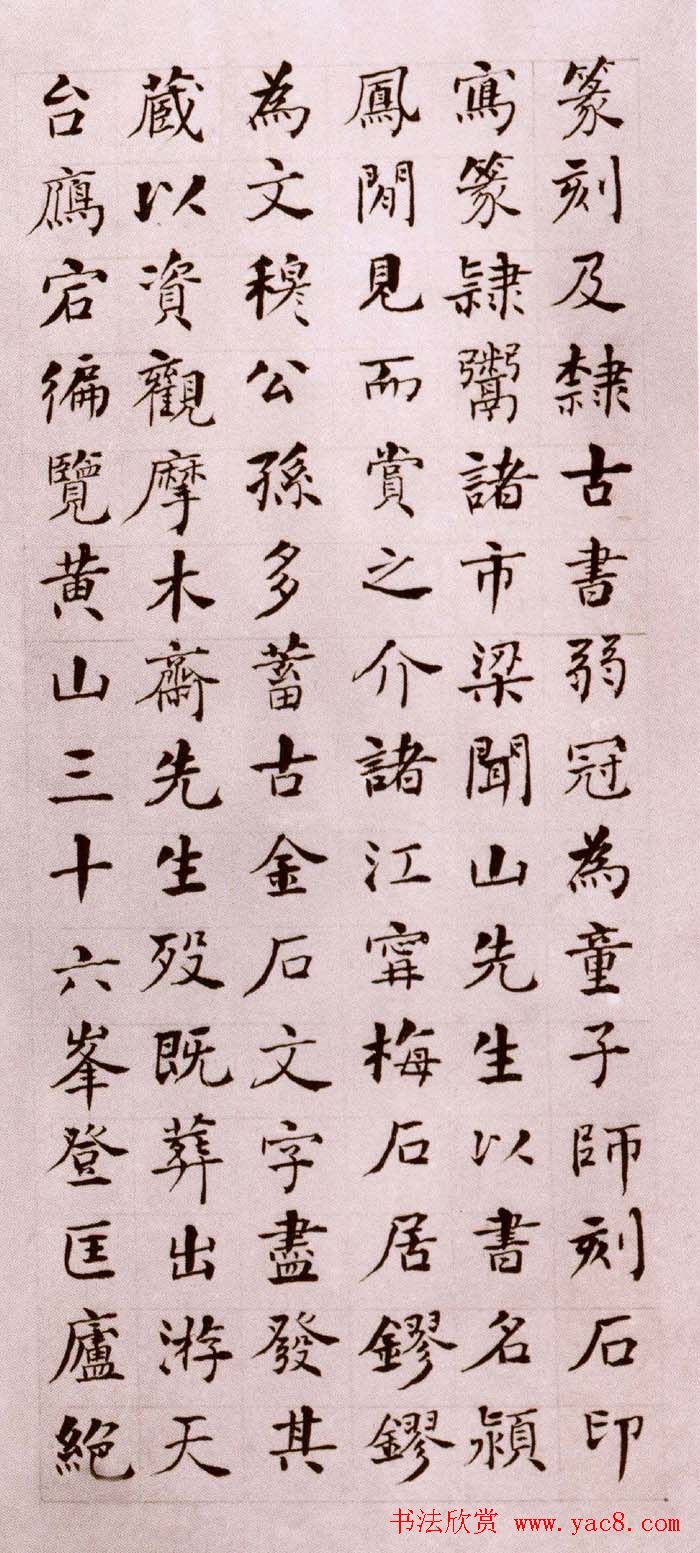 篆刻及隸古書弱冠為童子師刻石印
寫篆隸鬻諸市梁聞山先生以書名潁
鳳閒見而賞之介諸江寧梅石居鏐鏐
為文穆公孫多蓄古金石文字盡發其
藏以資觀摩木齋先生歿既葬出游天
台鴈宕徧覽黄山三十六峯登匡廬絕
书法欣赏 www.yac8.com